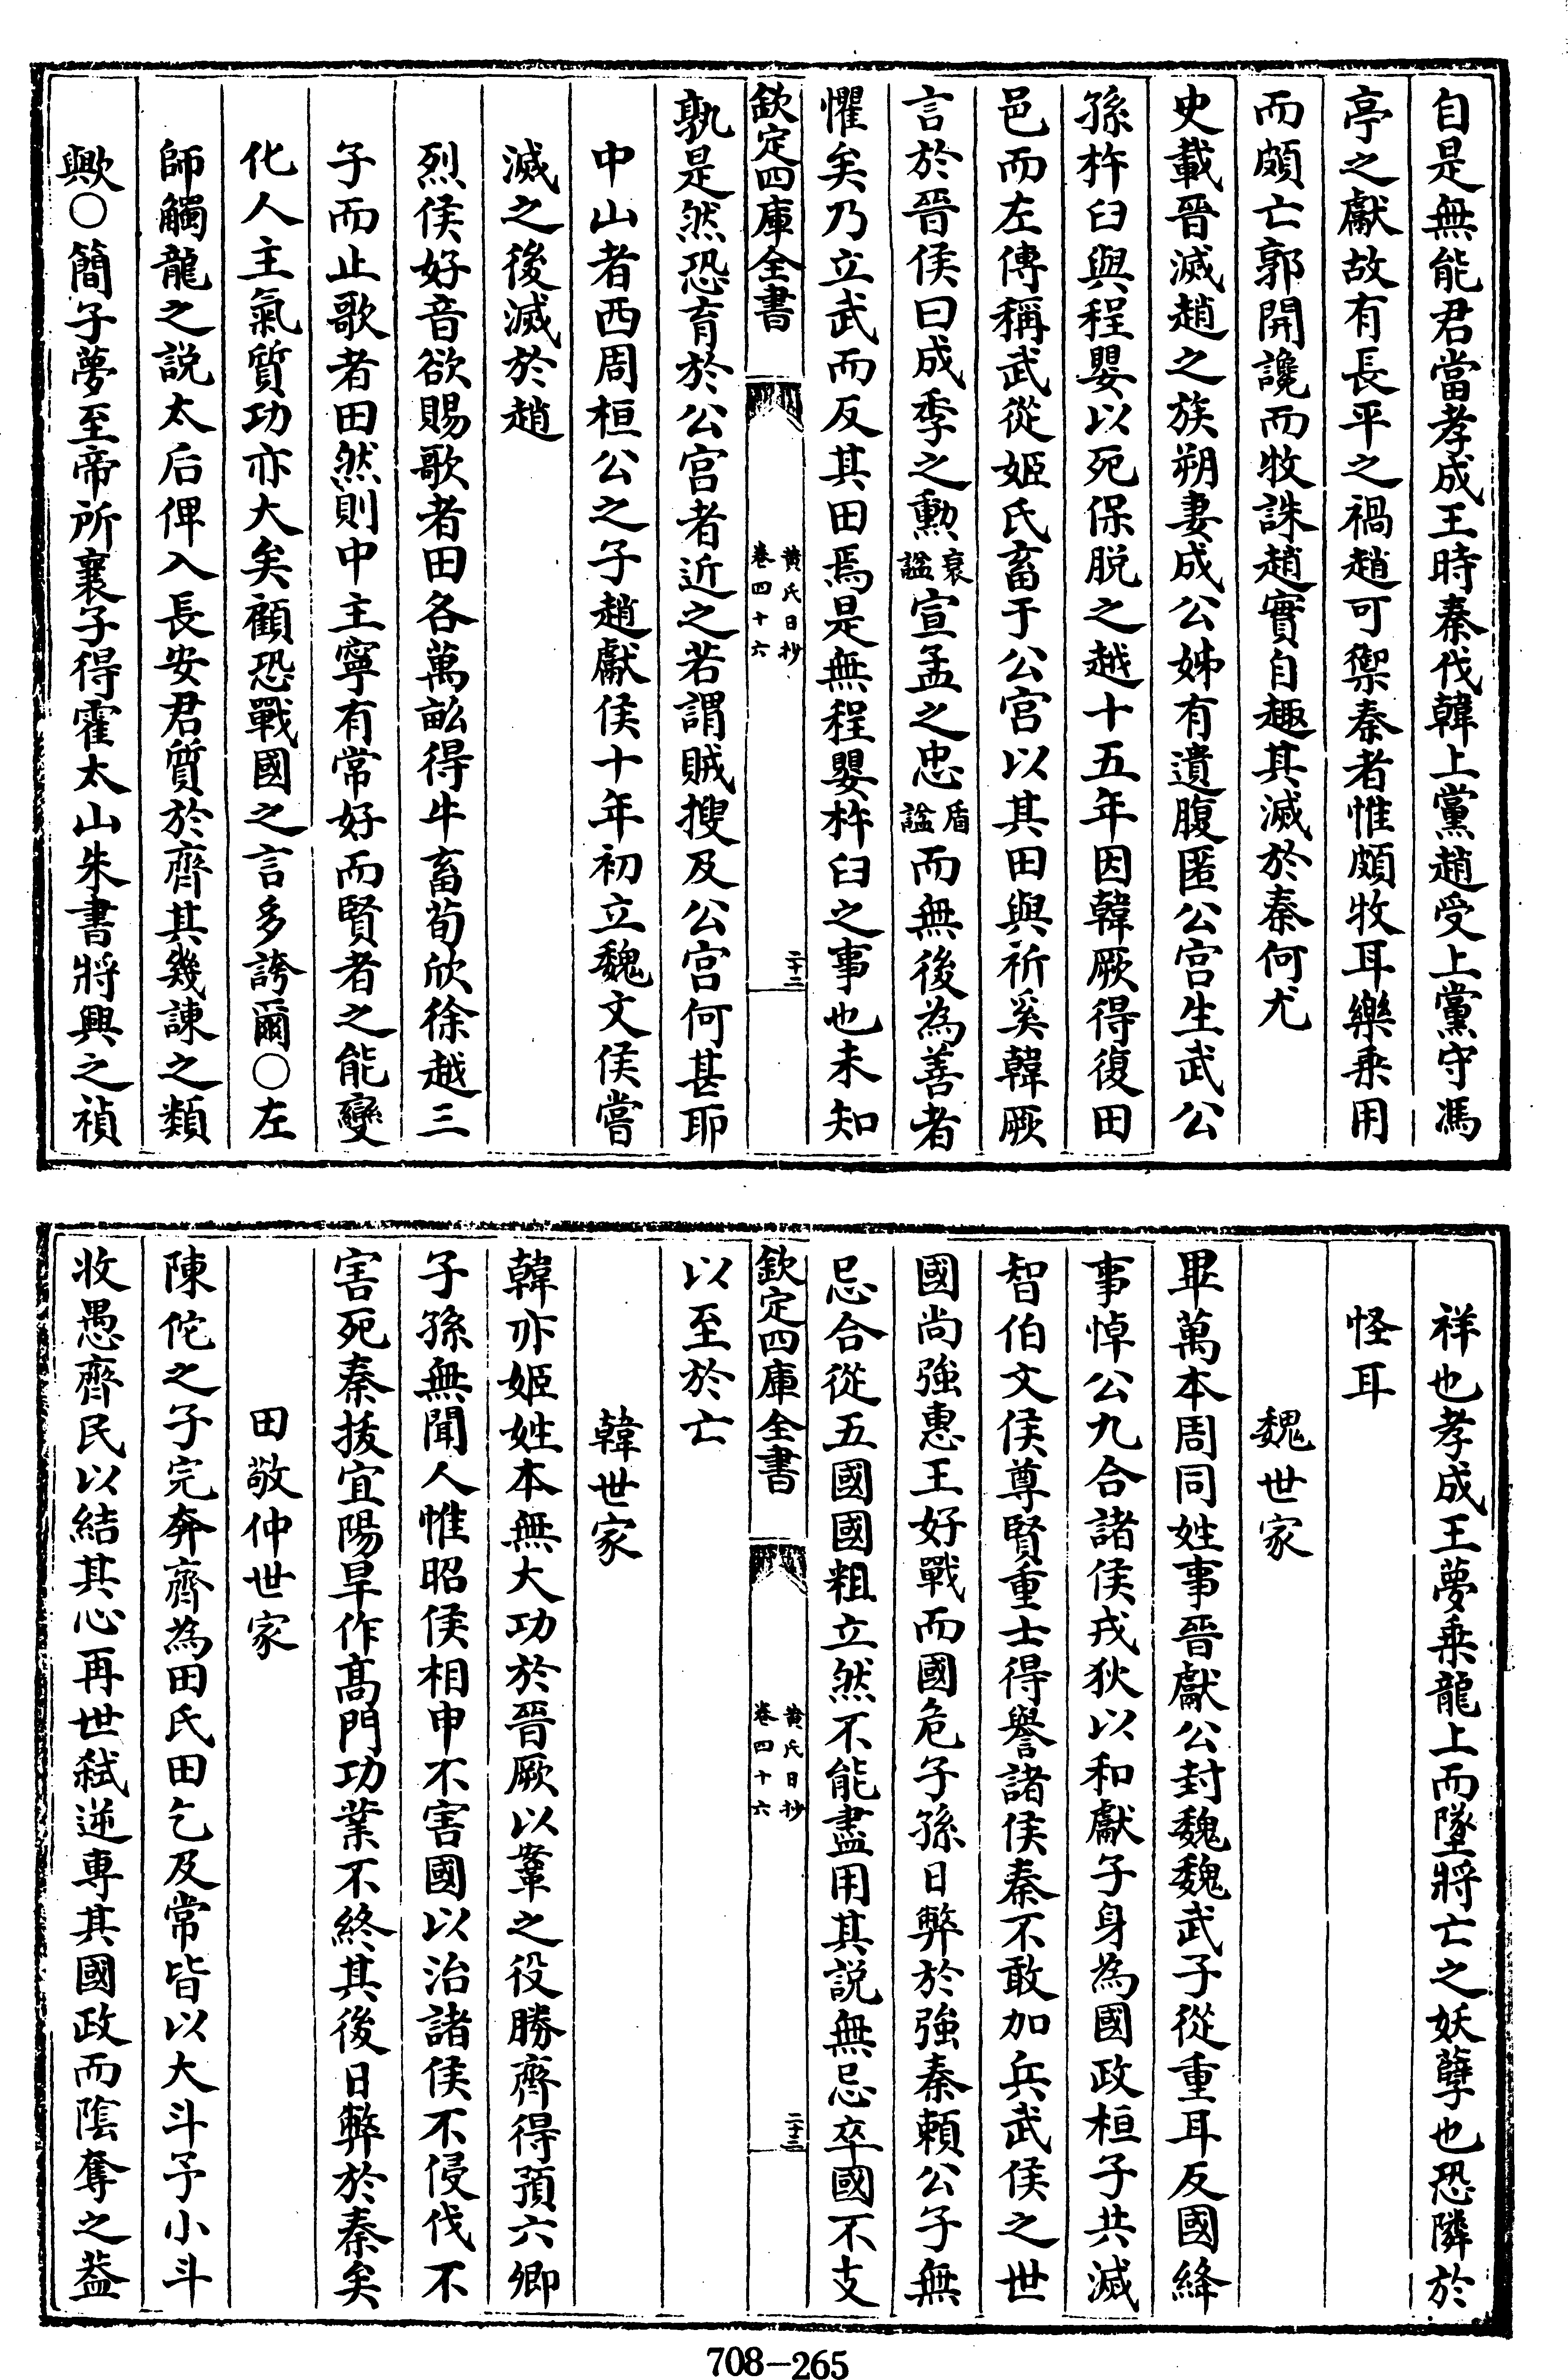 自是無能君當孝成王時秦伐韓上黨趙受上黨守馮
亭之獻故有長平之禍趙可禦秦者惟頗牧耳樂乗用
而頗亡郭開讒而牧誅趙實自趣其滅於秦何尤
史載晉滅趙之族朔妻成公姊有遺腹匿公宫生武公
孫杵臼與程嬰以死保脱之越十五年因韓厥得復田
邑而左傳稱武從姬氏畜于公宫以其田與祈奚韓厥
言於晉侯曰成季之勲衰謚宣孟之忠盾謚而無後為善者
懼矣乃立武而反其田焉是無程嬰杵臼之事也未知
欽定四庫全書 黄氏日抄 卷四十六 二十二
孰是然恐育於公宫者近之若謂賊搜及公宫何甚耶
中山者西周桓公之子趙獻侯十年初立魏文侯嘗
滅之後滅於趙
烈侯好音欲賜歌者田各萬畝得牛畜荀欣徐越三
子而止歌者田然則中主寧有常好而賢者之能變
化人主氣質功亦大矣顧恐戰國之言多誇爾○左
師觸龍之説太后俾入長安君質於齊其幾諌之類
歟○簡子夢至帝所襄子得霍太山朱書將興之禎
祥也孝成王夢乗龍上而墜將亡之妖孽也恐隣於
怪耳
魏世家
畢萬本周同姓事晉獻公封魏魏武子從重耳反國絳
事悼公九合諸侯戎狄以和獻子身為國政桓子共滅
智伯文侯尊賢重士得譽諸侯秦不敢加兵武侯之世
國尚強惠王好戰而國危子孫日弊於強秦頼公子無
忌合從五國國粗立然不能盡用其説無忌卒國不支
欽定四庫全書 黄氏日抄 卷四十六 二十三
以至於亡
韓世家
韓亦姬姓本無大功於晉厥以鞌之役勝齊得預六卿
子孫無聞人惟昭侯相申不害國以治諸侯不侵伐不
害死秦拔宜陽旱作髙門功業不終其後日弊於秦矣
田敬仲世家
陳佗之子完奔齊為田氏田乞及常皆以大斗予小斗
收愚齊民以結其心再世弑逆専其國政而隂奪之葢
708-265